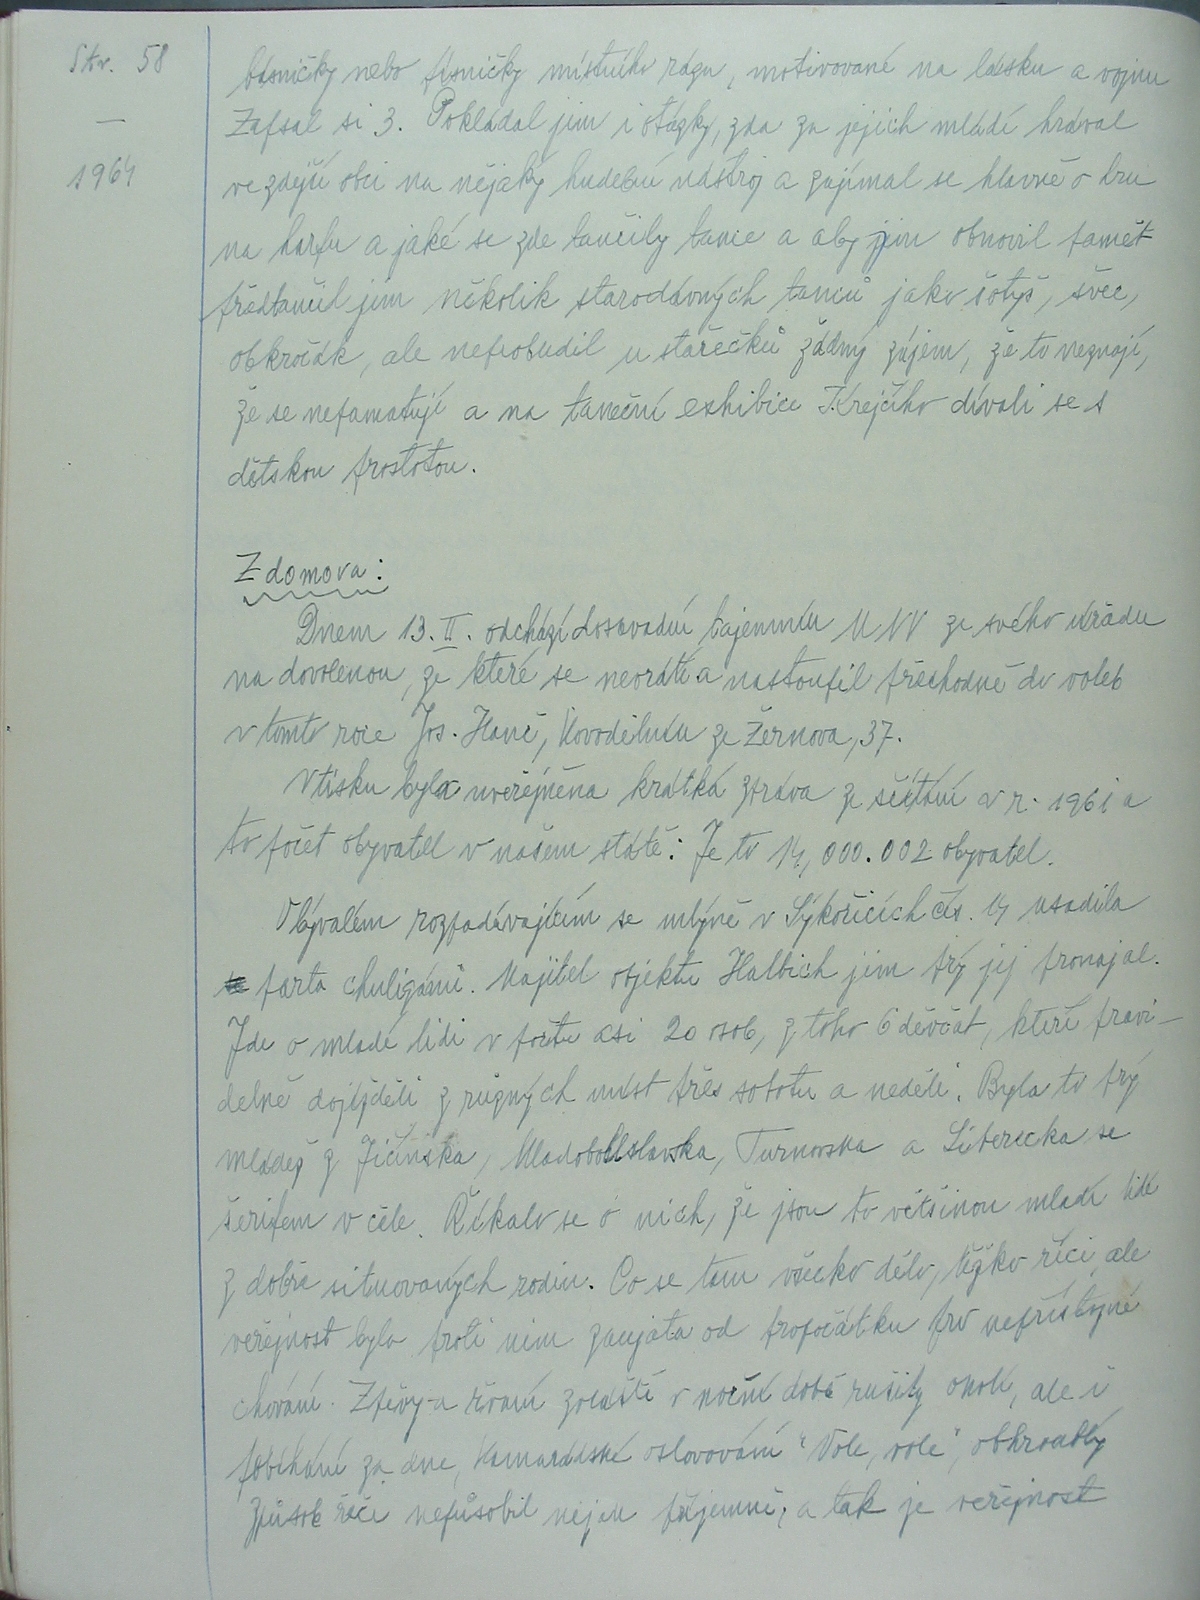 Str. 58
—
1964
básničky nebo písničky místního rázu, motivované na lásku a vojnu
Zapsal si 3. Pokládal jim i otázky, zda za jejich mládí hrával
ve zdejší obci na nějaký hudební nástroj a zajímal se hlavně o hru
na harfu a jaké se zde tančily tance a aby jim obnovil paměť
předtančil jim několik starodávných tanců jako šotyš, švec,
obkročák, ale neprobudil u stařečků žádný zájem, že to neznají,
že se nepamatují a na taneční exhibice J. Krejčího dívali se s
dětskou prostotou.
Z domova:
Dnem 13. II. odchází dosavadní tajemník MNV ze svého úřadu
na dovolenou, ze které se nevrátí a nastoupil přechodně do voleb
v tomto roce Jos. Hanč, kovodělník ze Žernova, 37.
V tisku byla uveřejněna krátká zpráva ze sčítání v r. 1961 a
to počet obyvatel v našem státě: Je to 14,000.002 obyvatel.
V bývalém rozpadávajícím se mlýně v Sýkořicích čís. 14 usadila
se parta chuligánů. Majitel objektu Halbich jim prý jej pronajal.
Jde o mladé lidi v počtu asi 20 osob, z toho 6 děvčat, kteří pravi-
delně dojížděli z různých míst přes sobotu a neděli. Byla to prý
mládež z Jičínska, Mladoboleslavska, Turnovska a Liberecka se
šerifem v čele. Říkalo se o nich, že jsou to většinou mladí lidé
z dobře situovaných rodin. Co se tam všecko dělo, těžko říci, ale
veřejnost byla proti nim zaujata od propočátku pro nepřístojné
chování. Zpěvy a řvaní zvláště v noční době rušily okolí, ale i
pobíhání za dne, kamarádské oslovování "Vole, vole", obhroublý
způsob řeči nepůsobil nijak příjemně, a tak je veřejnost